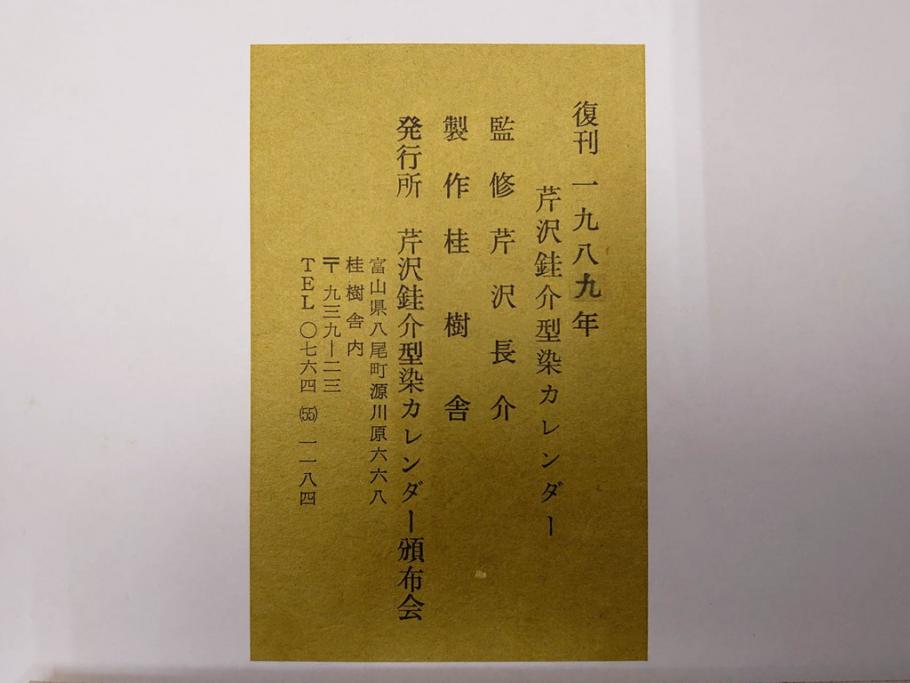 復刊 一九八九年
芹沢銈介型染カレンダー
監修 芹沢長介
製作 桂樹舎
発行所 芹沢銈介型染カレンダー頒布会
富山県八尾町源川原六六八
桂樹舎内
〒九三九ー二三
TEL 〇七六四(55)一一八四